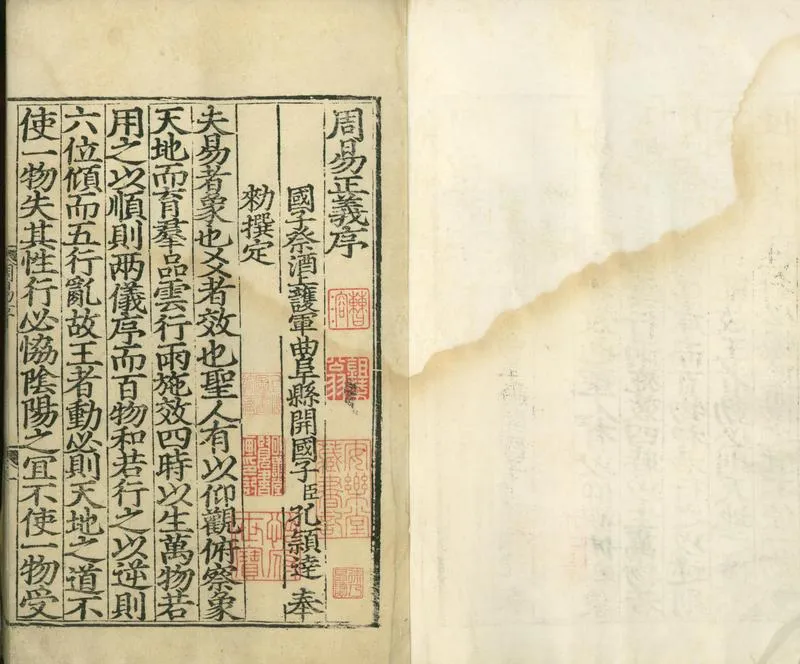 周易正義序
國子祭酒上護軍曲阜縣開國子臣孔穎達奉
勑撰定
夫易者象也爻者效也聖人有以仰觀俯察象
天地而育羣品雲行雨施效四時以生萬物若
用之以順則兩儀序而百物和若行之以逆則
六位傾而五行亂故王者動必則天地之道不
使一物失其性行必恊陰陽之宜不使一物受
安樂堂
藏書記